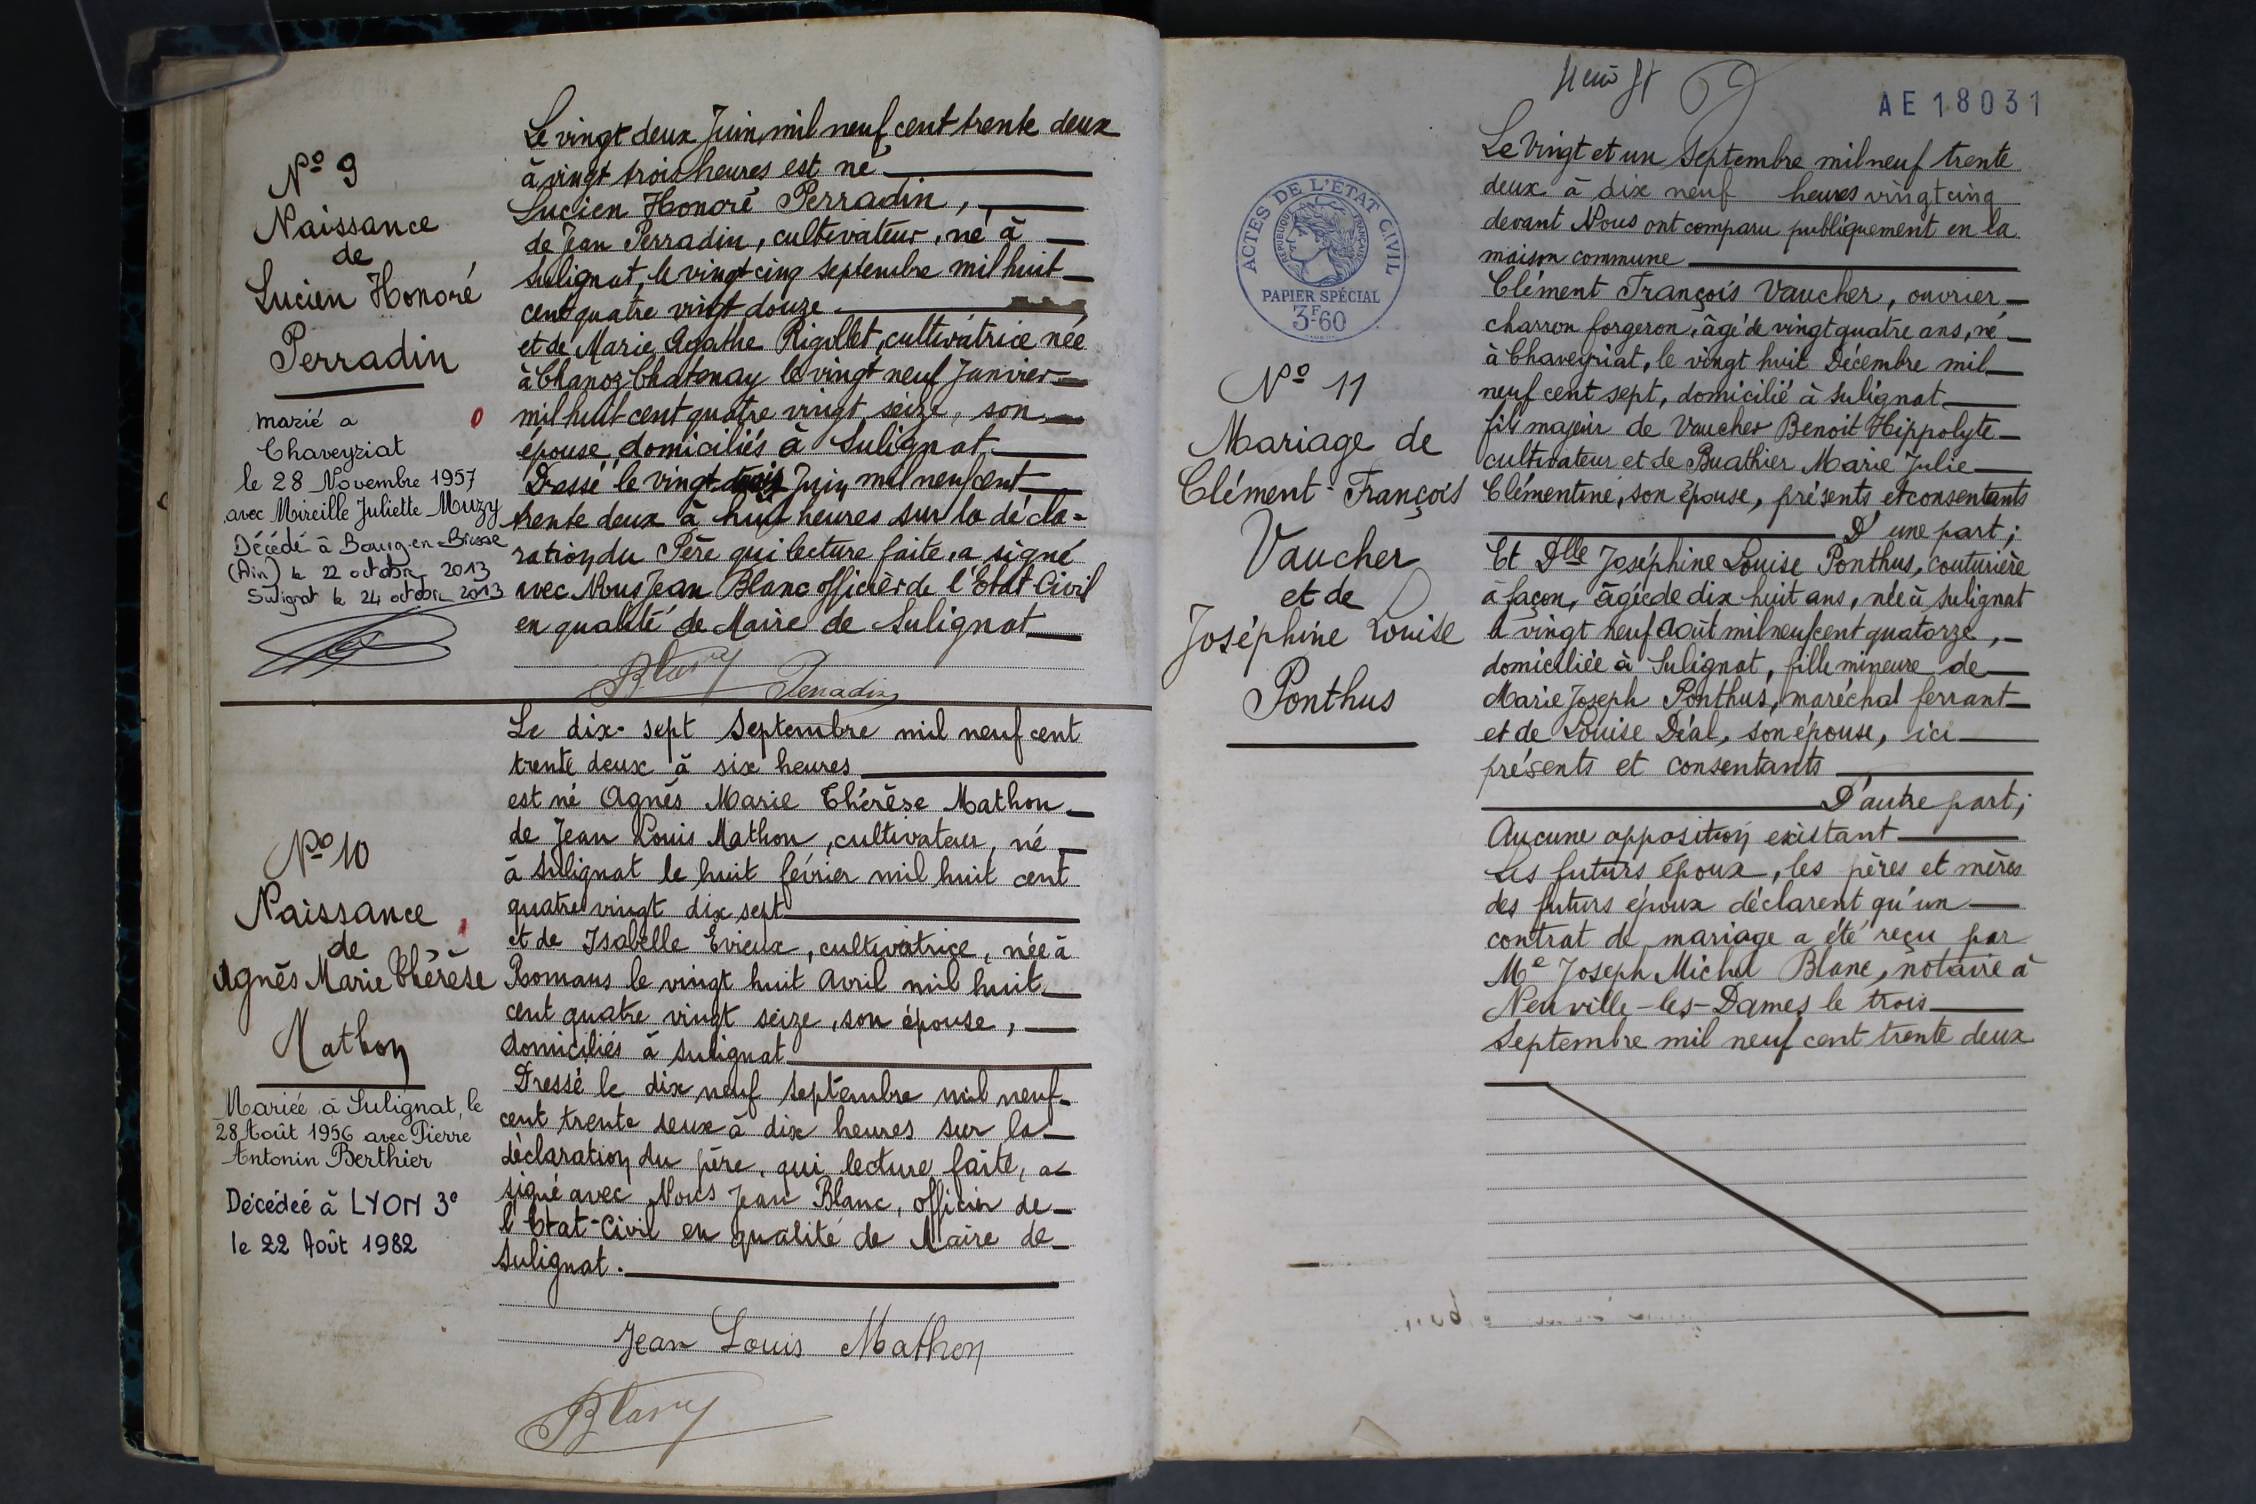 Nº 9
Naissance
de
Lucien Honoré
Perradin
marié a
Chaveyriat
le 28 Novembre 1957
avec Mireille Juliette Muzy
Décédé à Bourg-en-Bresse
(Ain) le 22 octobre 2013
Sulignat le 24 octobre 2013
Le vingt deux Juin mil neuf cent trente deux
à vingt trois heures est né
Lucien Honoré Perradin,
de Jean Perradin, cultivateur, né à
Sulignat, le vingt cinq Septembre mil huit
cent quatre vingt douze
et de Marie Agathe Rigollet, cultivatrice née
à Chanoz Chatenay le vingt neuf Janvier
mil huit cent quatre vingt seize, son
épouse, domiciliés à Sulignat
Dressé le vingt trois Juin mil neuf cent
trente deux à huit heures sur la décla-
ration du Père qui lecture faite, a signé
avec Nous Jean Blanc officier de l'Etat Civil
en qualité de Maire de Sulignat
Blanc Perradin
Nº 10
Naissance
de
Agnès Marie Thérèse
Mathon
Mariée à Sulignat, le
28 Août 1956 avec Pierre
Antonin Berthier
Décédée à LYON 3e
le 22 Août 1982
Le dix-sept Septembre mil neuf cent
trente deux à six heures
est né Agnès Marie Thérèse Mathon
de Jean Louis Mathon, cultivateur, né
à Sulignat le huit février mil huit cent
quatre vingt dix sept
et de Isabelle Evieux, cultivatrice, née à
Romans le vingt huit Avril mil huit
cent quatre vingt seize, son épouse,
domiciliés à Sulignat
Dressé le dix neuf Septembre mil neuf
cent trente deux à dix heures sur la
déclaration du père, qui lecture faite, a
signé avec Nous Jean Blanc, officier de
l'Etat-Civil en qualité de Maire de
Sulignat.
Jean Louis Mathon
Blanc
AE 18031
ACTES DE L'ETAT CIVIL
REPUBLIQUE FRANÇAISE
PAPIER SPÉCIAL
3F60
Nº 11
Mariage de
Clément François
Vaucher
et de
Joséphine Louise
Ponthus
Le Vingt et un Septembre mil neuf trente
deux à dix neuf heures vingt cinq
devant Nous ont comparu publiquement en la
maison commune
Clément François Vaucher, ouvrier
charron forgeron, âgé de vingt quatre ans, né
à Chaveyriat, le vingt huit Décembre mil
neuf cent sept, domicilié à Sulignat
fils majeur de Vaucher Benoit Hippolyte
cultivateur et de Buathier Marie Julie
Clémentine, son épouse, présents et consentants
D'une part;
Et Dlle Joséphine Louise Ponthus, couturière
à façon, âgée de dix huit ans, née à Sulignat
le vingt neuf Août mil neuf cent quatorze,
domiciliée à Sulignat, fille mineure de
Marie Joseph Ponthus, maréchal ferrant
et de Louise Déal, son épouse, ici
présents et consentants
D'autre part;
Aucune opposition existant
Les futurs époux, les pères et mères
des futurs époux déclarent qu'un
contrat de mariage a été reçu par
Me Joseph Michel Blanc, notaire à
Neuville-les-Dames le trois
Septembre mil neuf cent trente deux